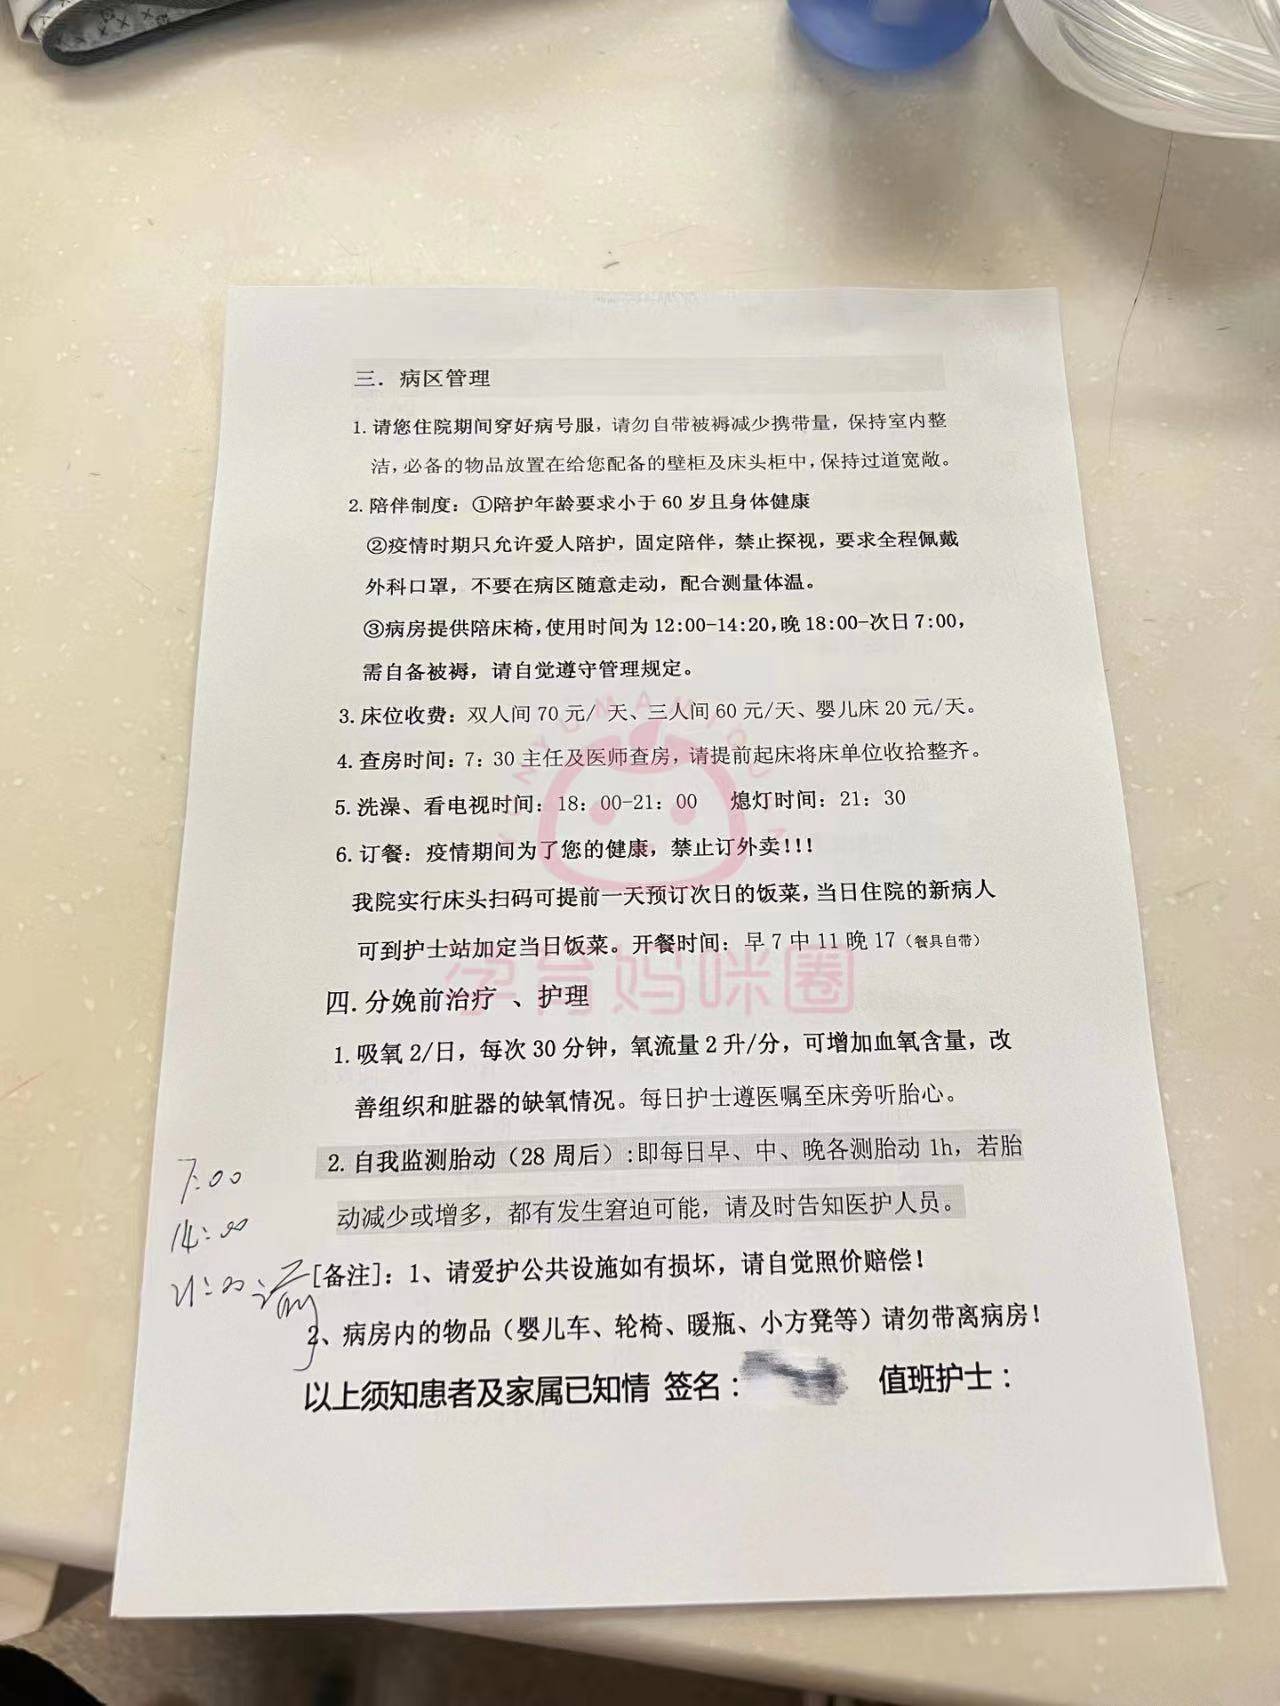 三. 病区管理
1. 请您住院期间穿好病号服，请勿自带被褥减少携带量，保持室内整
洁，必备的物品放置在给您配备的壁柜及床头柜中，保持过道宽敞。
2. 陪伴制度：①陪护年龄要求小于 60 岁且身体健康
②疫情时期只允许爱人陪护，固定陪伴，禁止探视，要求全程佩戴
外科口罩，不要在病区随意走动，配合测量体温。
③病房提供陪床椅，使用时间为 12:00-14:20，晚 18:00-次日 7:00，
需自备被褥，请自觉遵守管理规定。
3. 床位收费：双人间 70 元/ 天、三人间 60 元/天、婴儿床 20 元/天。
4. 查房时间：7：30 主任及医师查房，请提前起床将床单位收拾整齐。
5. 洗澡、看电视时间：18：00-21：00 熄灯时间：21：30
6. 订餐：疫情期间为了您的健康，禁止订外卖!!!
我院实行床头扫码可提前一天预订次日的饭菜，当日住院的新病人
可到护士站加定当日饭菜。开餐时间：早 7 中 11 晚 17（餐具自带）
孕育妈咪圈
四. 分娩前治疗 、护理
1. 吸氧 2/日，每次 30 分钟，氧流量 2 升/分，可增加血氧含量，改
善组织和脏器的缺氧情况。每日护士遵医嘱至床旁听胎心。
2. 自我监测胎动（28 周后）:即每日早、中、晚各测胎动 1h，若胎
动减少或增多，都有发生窘迫可能，请及时告知医护人员。
7:00
14:00
21:00
[备注]：1、请爱护公共设施如有损坏，请自觉照价赔偿！
2、病房内的物品（婴儿车、轮椅、暖瓶、小方凳等）请勿带离病房！
以上须知患者及家属已知情 签名： 值班护士：